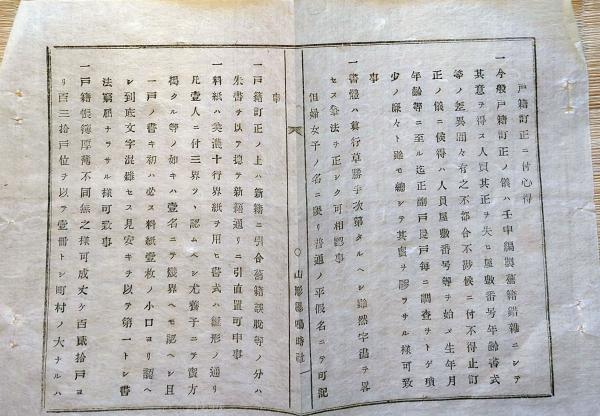 戸籍訂正ニ付心得
一今般戸籍訂正ノ儀ハ壬申編製舊籍錯雜ニシテ
其意ヲ得ス人員其正ヲ失ヒ屋敷番号年齡書式
等ノ差異間々有之不都合不尠候ニ付不得止訂
正ノ儀ニ候得ハ人員屋敷番号等ヲ始メ生年月
年齡等ニ至ル迄正副戸長戸毎ニ調査チトゲ瑣
少ノ廉々ト雖モ總シテ其實ヲ謬ラサル樣可致
事
一書體ハ眞行草勝手次第タルヘシ雖然字畫ヲ畧
セス筆法ヲ正シク可相認事
但婦女子ノ名ニ限リ普通ノ平假名ニテ可記
〇山形陽鳴時社
一戸籍訂正ノ上ハ新籍ニ引合舊籍誤脱等ノ分ハ
朱書ヲ以テ總テ新籍通リニ引直置可申事
一料紙ハ美濃十行界紙ヲ用ヒ書式ハ雛形ノ通リ
凡壹人ニ付三界ヅヽ認ムヘシ尤養子ニテ實方
掲クル等ノ如キハ壹名ニテ幾界ヘモ認ヘシ且
一戸ノ書キ初ハ必ス料紙壹枚ノ小口ヨリ認ヘ
シ到底文字混雜セス見安キヲ以テ第一トシ書
法窮屈ナラサル樣可致事
一戸籍帳簿厚薄不同無之樣可成丈ケ百貳拾戸ヨ
リ百三拾戸位ヲ以テ壹冊トシ町村ノ大ナルハ